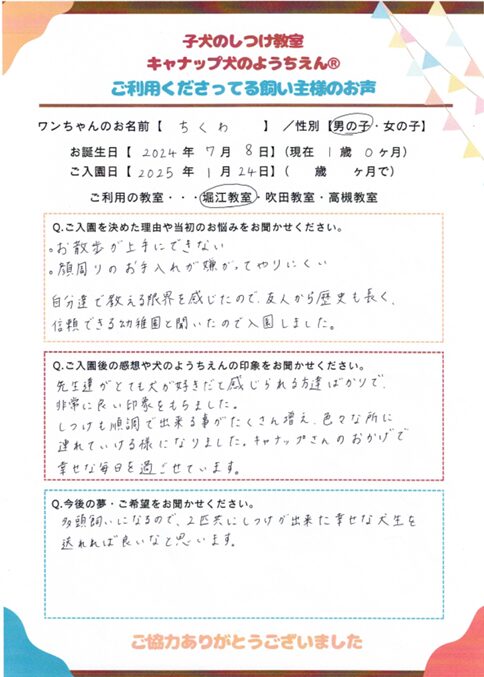 子犬のしつけ教室
キャナップ犬のようちえん®
ご利用くださってる飼い主様のお声
ワンちゃんのお名前【 ちくわ 】 ／性別【男の子・女の子】
お誕生日【 2024 年 7 月 8 日】(現在 1 歳 0 ヶ月)
ご入園日【 2025 年 1 月 24 日】( 歳 ヶ月で)
ご利用の教室・・・堀江教室・吹田教室・高槻教室
Q.ご入園を決めた理由や当初のお悩みをお聞かせください。
。お散歩が上手にできない
。顔周りのお手入れが嫌がってやりにくい
自分達で教える限界を感じたので、友人から歴史も長く、
信頼できる幼稚園と聞いたので入園しました。
Q.ご入園後の感想や犬のようちえんの印象をお聞かせください。
先生達がとても犬が好きだと感じられる方達ばかりで、
非常に良い印象をもちました。
しつけも順調で出来る事がたくさん増え、色々な所に
連れていける様になりました。キャナップさんのおかげで
幸せな毎日を過ごせています。
Q.今後の夢・ご希望をお聞かせください。
多頭飼いになるので、2匹共にしつけが出来た幸せな犬生を
送れれば良いなと思います。
ご協力ありがとうございました